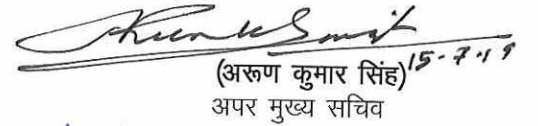 (अरूण कुमार सिंह) 15-7-19
अपर मुख्य सचिव